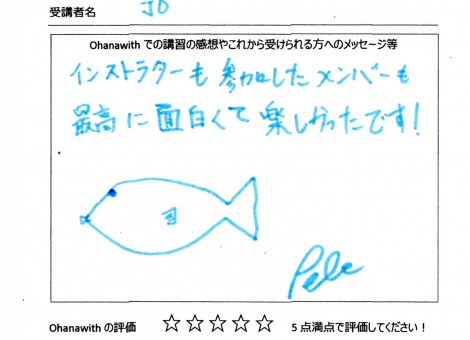 受講者名 JO
Ohanawith での講習の感想やこれから受けられる方へのメッセージ等
インストラクターも参加したメンバーも
最高に面白くて楽しかったです!
Pele
Ohanawith の評価 ☆☆☆☆☆ 5 点満点で評価してください!